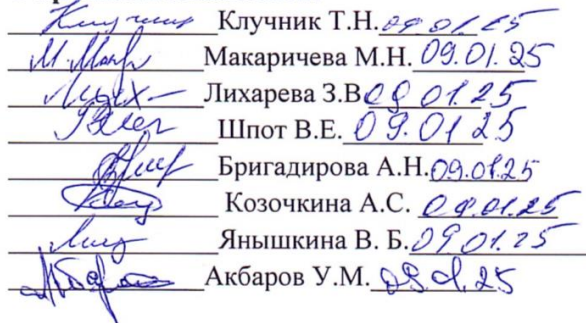 Клучник Т.Н. 09.01.25
Макаричева М.Н. 09.01.25
Лихарева З.В 09 01.25
Шпот В.Е. 09.01 25
Бригадирова А.Н. 09.01.25
Козочкина А.С. 09.01.25
Янышкина В. Б. 09 01.25
Акбаров У.М. 09.01.25